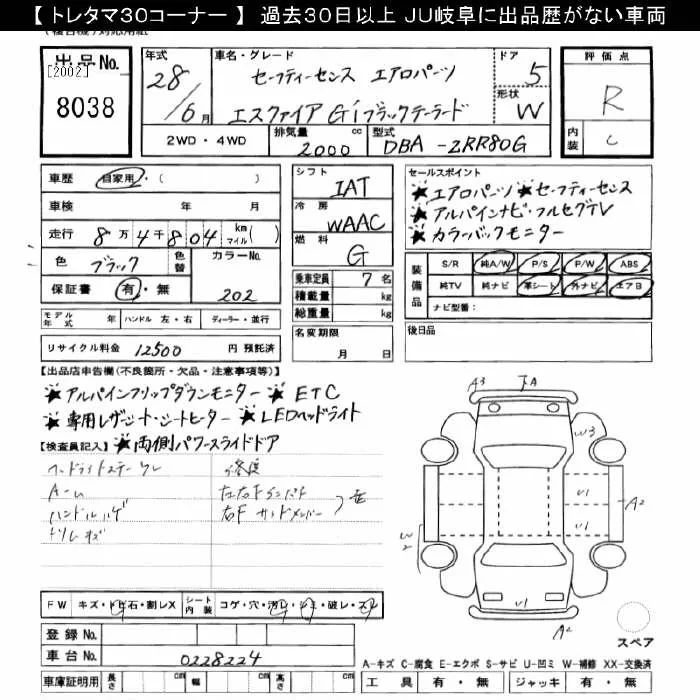 【トレタマ30コーナー】 過去30日以上 JU岐阜に出品歴がない車両
出品No.
[2002]
8038
年式 28/6月
車名・グレード セーフティーセンス エアロパーツ
エスクァイア Gi ブラックテーラード
ドア 5
形状 W
2WD・4WD 排気量 2000 cc 型式 DBA-ZRR80G
評価点 R
内装 C
車歴 自家用・( )
車検 年 月
走行 8万4千804 km マイル( )
色 ブラック 色替 カラーNo. 202
保証書 有・無
シフト IAT
冷房 WAAC
燃料 G
乗車定員 7名
積載量 kg
総重量 kg
名変期限 月 日
セールスポイント
★エアロパーツ ★セーフティーセンス
★アルパインナビ・フルセグTV
★カラーバックモニター
装備品 S/R 純A/W P/S P/W ABS
純TV 純ナビ 革シート 外ナビ エアB
ナビ型番:
後日品
モデル年式 年 ハンドル 左・右 ディーラー・並行
リサイクル料金 12500 円 預託済
【出品店申告欄(不良箇所・欠品・注意事項等)】
★アルパインフリップダウンモニター ★ETC
★専用レザーシート・シートヒーター ★LEDヘッドライト
【検査員記入】 ★両側パワースライドドア
A3 A
W3
U1 U1 A2
W2
U1
A2
FW キズ・トビ石・割レX シート内装 コゲ・穴・汚レ・シミ・破レ・スレ
登録No.
車台No. 0228224
スペア
A-キズ C-腐食 E-エクボ S-サビ U-凹ミ W-補修 XX-交換済
車庫証明用 長さ cm 幅 cm 高さ cm
工具 有・無 ジャッキ 有・無